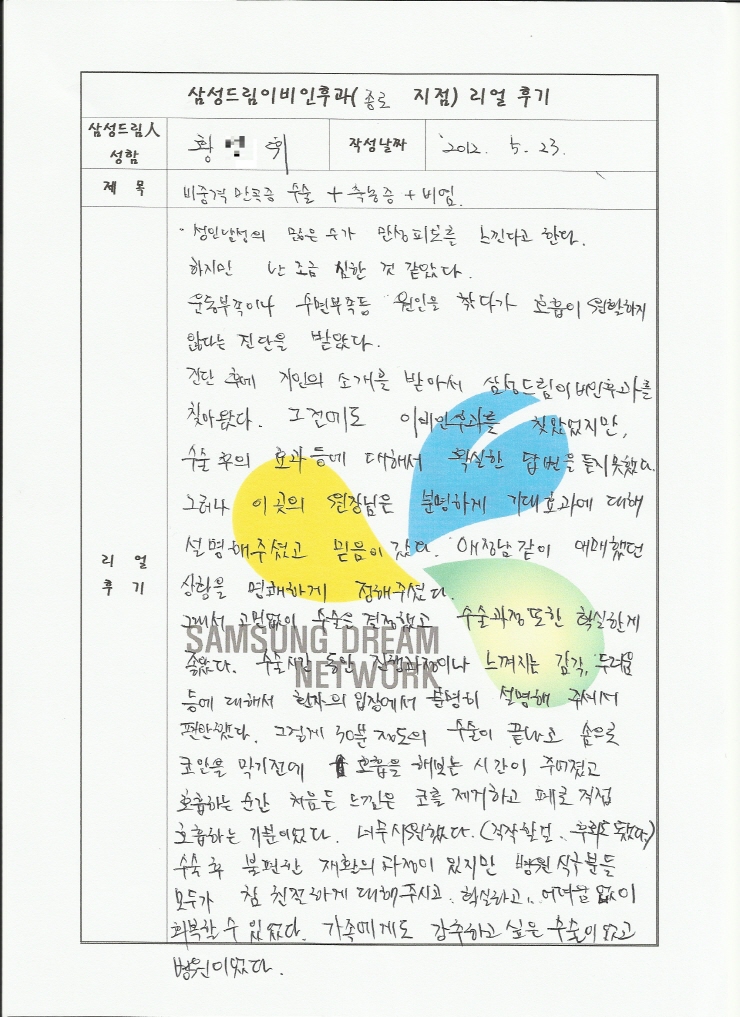 삼성드림이비인후과(종로 지점) 리얼 후기
삼성드림人 성함
황 희
작성날짜
2012. 5. 23.
제 목
비중격 만곡증 수술 + 축농증 + 비염.
리 얼 후 기
성인남성의 많은 수가 만성피로를 느낀다고 한다.
하지만 난 조금 심한 것 같았다.
운동부족이나 수면부족등 원인을 찾다가 호흡이 원활하지
않다는 진단을 받았다.
진단 후에 지인의 소개를 받아서 삼성드림이비인후과를
찾아왔다. 그전에도 이비인후과를 찾았었지만,
수술 후의 효과 등에 대해서 확실한 답변을 듣지못했다.
그러나 이 곳의 원장님은 분명하게 기대효과에 대해
설명해주셨고 믿음이 갔다. 애정남같이 애매했던
상황을 명쾌하게 정해주셨다.
그래서 고민없이 수술은 결정했고 수술과정또한 확실한게
좋았다. 수술시간 동안 진행과정이나 느껴지는 감각, 두려움
등에 대해서 환자의 입장에서 분명히 설명해 주셔서
편안했다. 그렇게 30분 정도의 수술이 끝나고 솜으로
코안을 막기전에 호흡을 해보는 시간이 주어졌고
호흡하는 순간 처음든 느낌은 코를 제거하고 폐로 직접
호흡하는 기분이었다. 너무시원했다. (진작할걸.. 후회도 됐었다)
수술 후 불편한 재활의 과정이 있지만 병원 식구분들
모두가 참 친절하게 대해주시고, 확실하고, 어려움 없이
회복할 수 있었다. 가족에게도 강추하고 싶은 수술이었고
병원이었다.
SAMSUNG DREAM
NETWORK